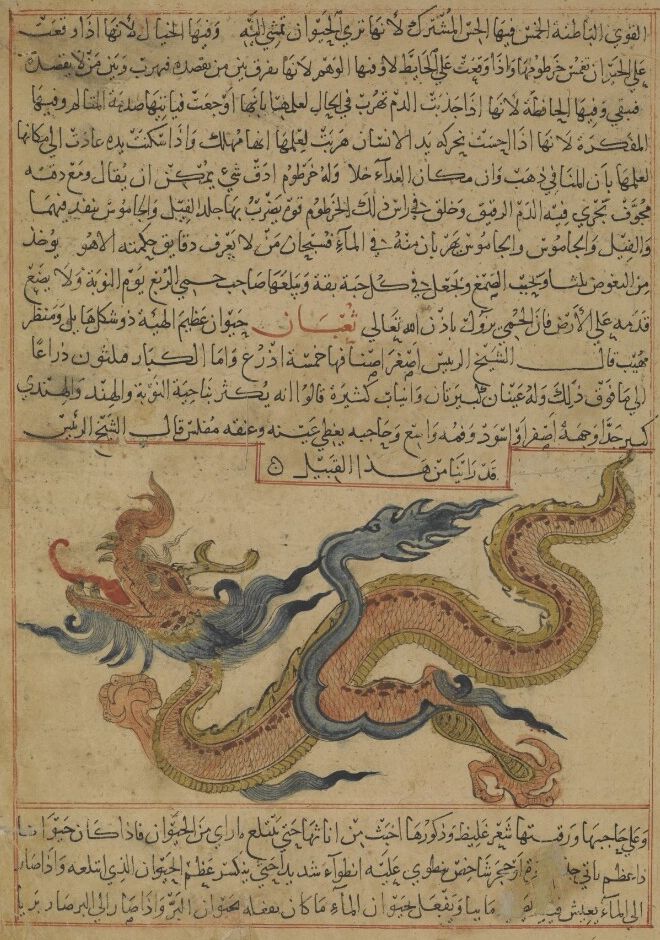 القوي الباطنة الخمس فيها الحس المشترك لانها تري الحيوان تمشي اليه وفيها الخيال لانها اذا وقعت
علي الحيوان تغمس خرطومها واذا وقعت علي الحايط لا وفيها الوهم لانها يفرق بين من يقصده فيهرب وبين من لا يقصده
فيبقي وفيها الحافظة لانها اذا جذبت الدم تهرب في الحال لعلمها بانها اوجعت فياتيها صدمة المتالم وفيها
المفكرة لانها اذا احست بحركه يد الانسان هربت لعلمها انها مهلك واذا سكنت يده عادت الي مكانها
لعلمها بان المنافي ذهب وان مكان الغدآء خلا وله خرطوم ادق شيء يمكن ان يقال ومع دقته
مجوف تجري فيه الدم الرقيق وخلق في راس ذلك الخرطوم قوه يضرب بها جلد الفيل والجاموس ينفد فيهما
والفيل والجاموس والجاموس يهربان منه في المآء فسبحان من لا يعرف دقايق حكمته الا هو يوخذ
من البعوض وتجعل في كل حبة بقة ويبلعها صاحب حمي الربع يوم النوبة ولا يضع
قدمه علي الارض فان الحمي يزول باذن الله تعالي ثعبان حيوان عظيم الهيئة ذو شكل هايل ومنظر
مهيب قال الشيخ الريس اصغر اصنافها خمسة اذرع واما الكبار ثلثون ذراعا
الي ما فوق ذلك وله عينان كبيرتان وانياب كثيرة قالوا انه يكثر بناحية النوبة والهند والهندي
كبير جدا وجهه اصفر او اسود وفمه واسع وحاجبه يغطي عينه وعنقه مفلس قال الشيخ الرئيس
قد راينا من هذا القبيل
وعلي حاجبها ورقبتها شعر غليظ وذكورها اخبث من اناثها حتي يبتلع ما راي من الحيوان فاذا كان حيوانا
ذا عظم ياتي شجرة او حجر شاخص ينطوي عليه انطوآء شديدا حتي ينكسر عظم الحيوان الذي ابتلعه واذا صار
الي المآء يعيش فيه مايبا ويفعل لحيوان المآء ما كان يفعله بحيوان البر واذا صار الي البر صار بريا